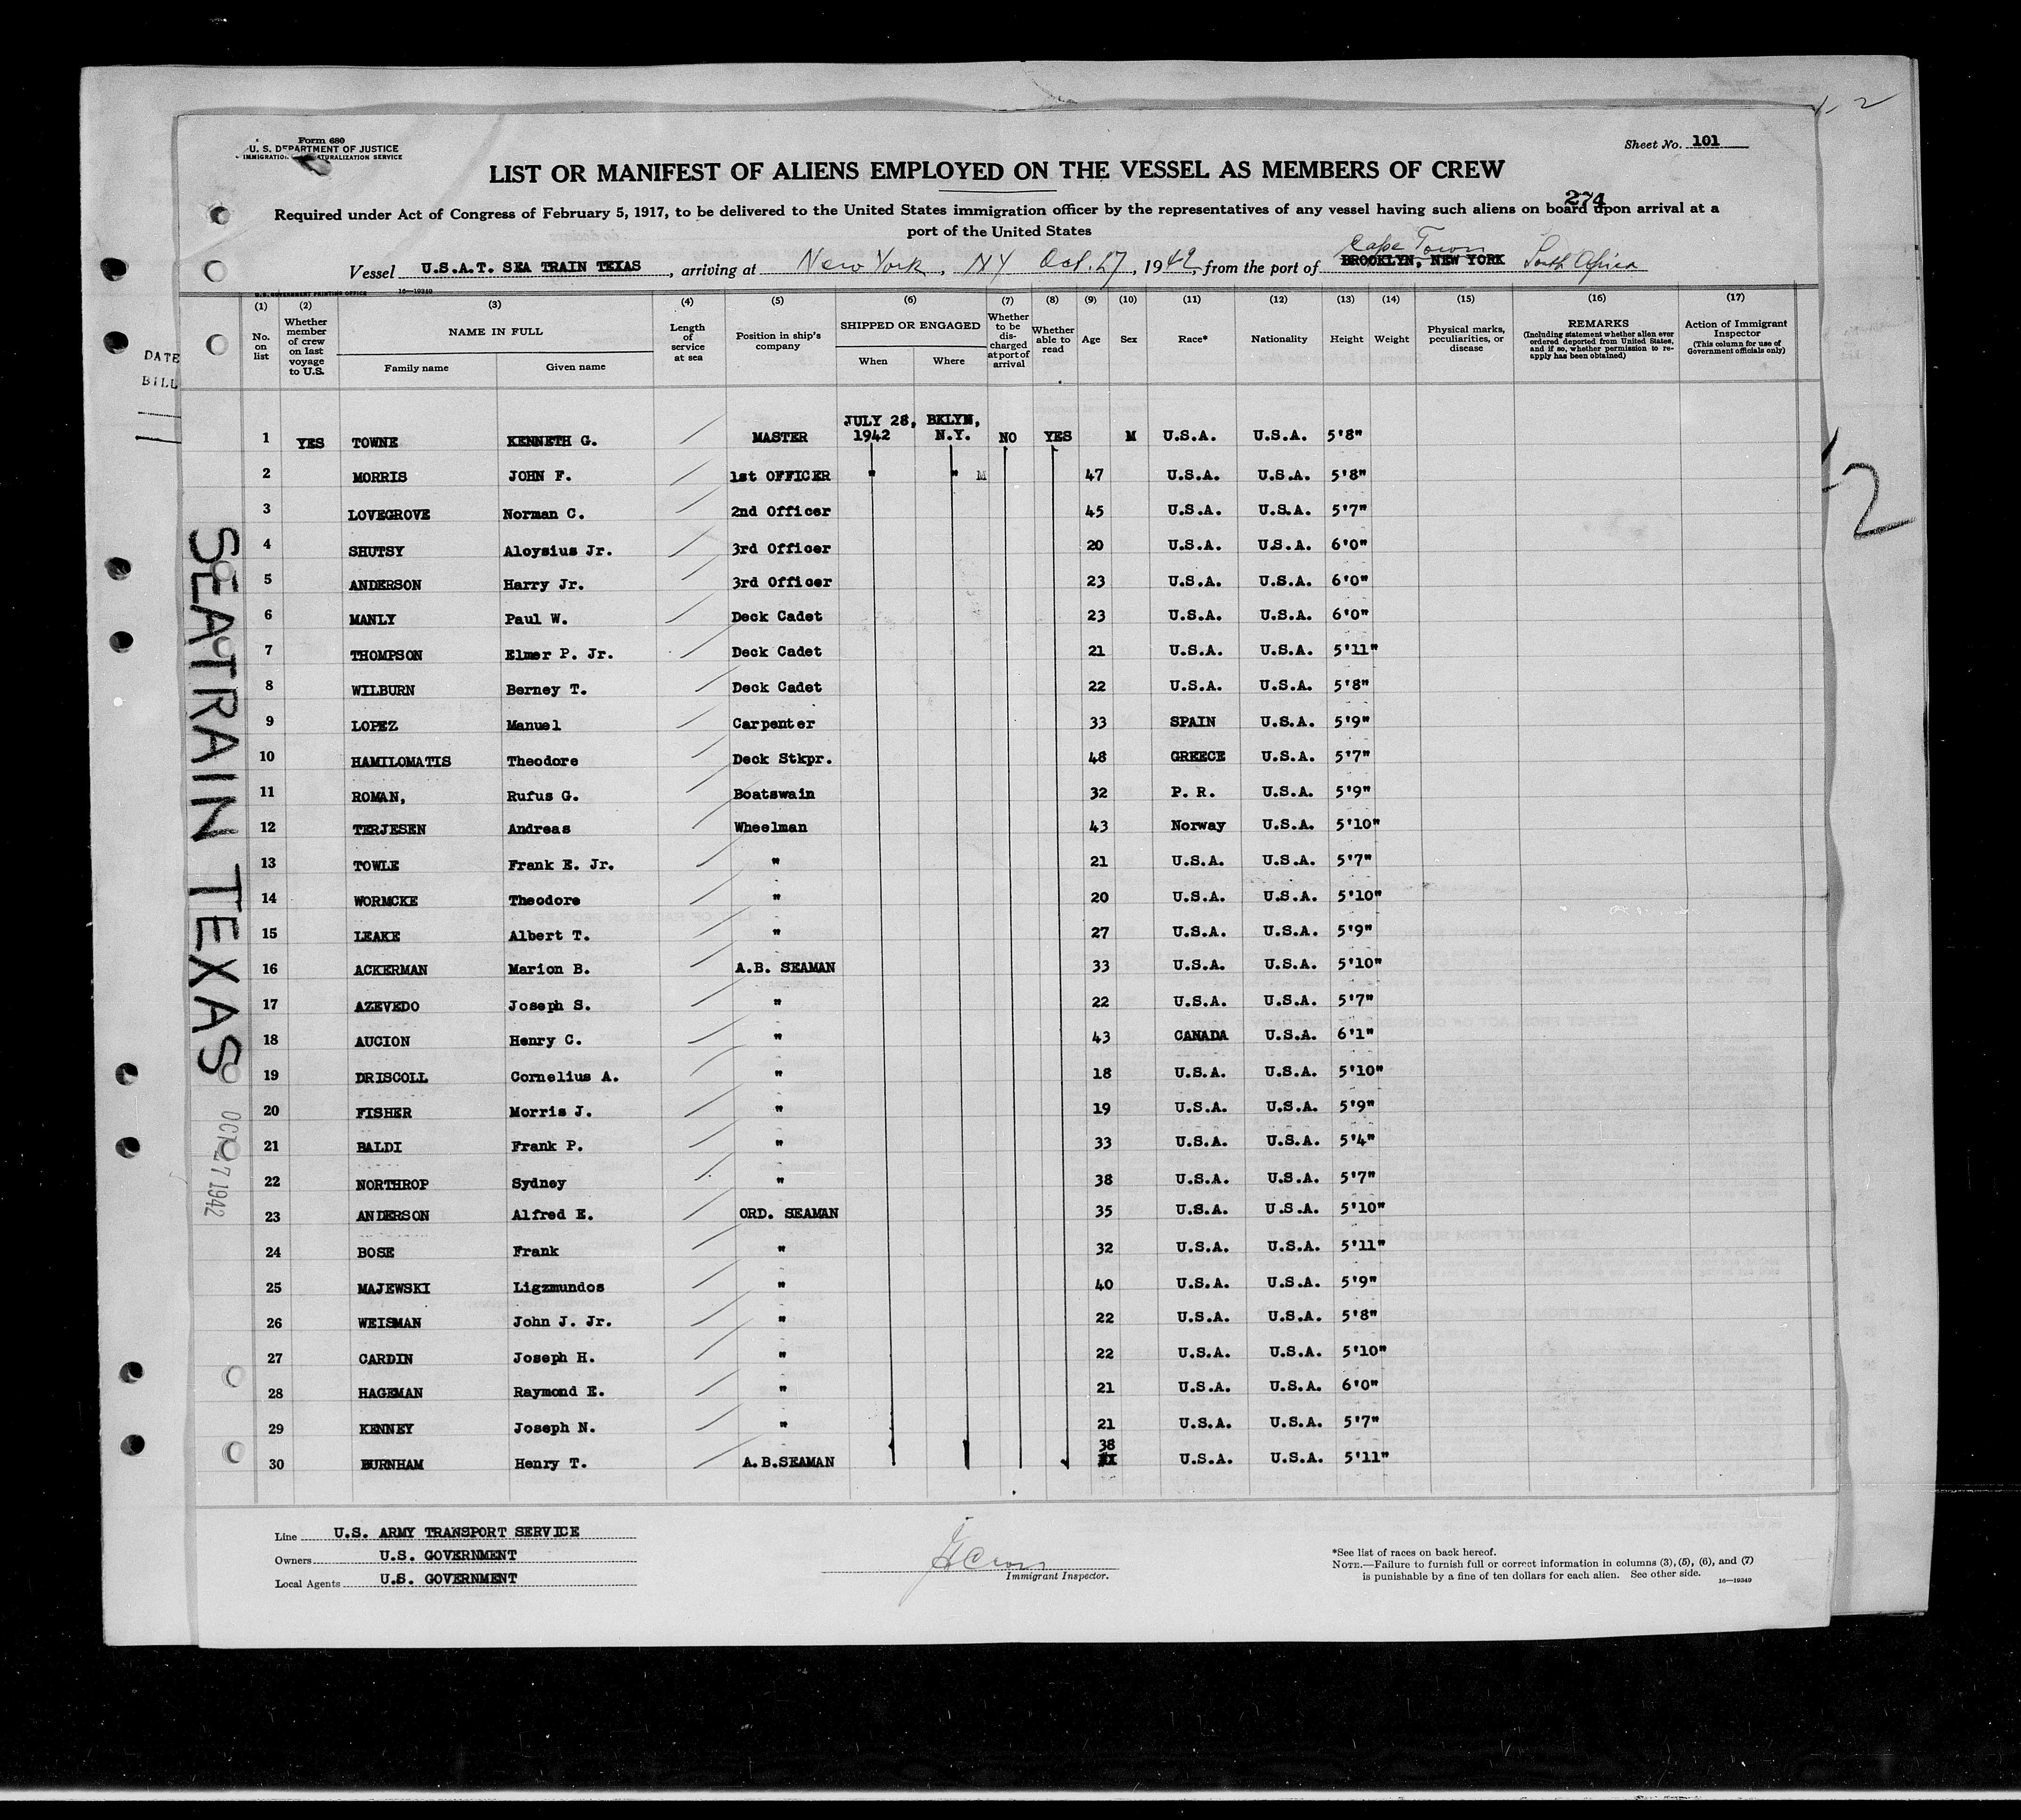 Form 680
U. S. DEPARTMENT OF JUSTICE
IMMIGRATION NATURALIZATION SERVICE
Sheet No. 101
LIST OR MANIFEST OF ALIENS EMPLOYED ON THE VESSEL AS MEMBERS OF CREW
274
Required under Act of Congress of February 5, 1917, to be delivered to the United States immigration officer by the representatives of any vessel having such aliens on board upon arrival at a
port of the United States
Cape Town
Vessel U.S.A.T. SEA TRAIN TEXAS, arriving at New York, NY Oct. 27, 1942, from the port of BROOKLYN, NEW YORK South Africa
U. S. GOVERNMENT PRINTING OFFICE 16—19349
(1) (2) (3) (4) (5) (6) (7) (8) (9) (10) (11) (12) (13) (14) (15) (16) (17)
No. on list
Whether member of crew on last voyage to U.S.
NAME IN FULL
Family name Given name
Length of service at sea
Position in ship's company
SHIPPED OR ENGAGED
When Where
Whether to be discharged at port of arrival
Whether able to read
Age Sex Race* Nationality Height Weight
Physical marks, peculiarities, or disease
REMARKS
(Including statement whether alien ever ordered deported from United States, and if so, whether permission to reapply has been obtained)
Action of Immigrant Inspector
(This column for use of Government officials only)
DATE
BILL
1 YES TOWNE KENNETH G. MASTER JULY 28, 1942 BKLYN, N.Y. NO YES M U.S.A. U.S.A. 5'8"
2 MORRIS JOHN F. 1st OFFICER " " M 47 U.S.A. U.S.A. 5'8"
3 LOVEGROVE Norman C. 2nd Officer 45 U.S.A. U.S.A. 5'7"
4 SHUTSY Aloysius Jr. 3rd Officer 20 U.S.A. U.S.A. 6'0"
5 ANDERSON Harry Jr. 3rd Officer 23 U.S.A. U.S.A. 6'0"
6 MANLY Paul W. Deck Cadet 23 U.S.A. U.S.A. 6'0"
7 THOMPSON Elmer P. Jr. Deck Cadet 21 U.S.A. U.S.A. 5'11"
8 WILBURN Berney T. Deck Cadet 22 U.S.A. U.S.A. 5'8"
9 LOPEZ Manuel Carpenter 33 SPAIN U.S.A. 5'9"
10 HAMILOMATIS Theodore Deck Stkpr. 48 GREECE U.S.A. 5'7"
11 ROMAN, Rufus G. Boatswain 32 P. R. U.S.A. 5'9"
12 TERJESEN Andreas Wheelman 43 Norway U.S.A. 5'10"
13 TOWLE Frank E. Jr. " 21 U.S.A. U.S.A. 5'7"
14 WORMCKE Theodore " 20 U.S.A. U.S.A. 5'10"
15 LEAKE Albert T. " 27 U.S.A. U.S.A. 5'9"
16 ACKERMAN Marion B. A.B. SEAMAN 33 U.S.A. U.S.A. 5'10"
17 AZEVEDO Joseph S. " 22 U.S.A. U.S.A. 5'7"
18 AUCION Henry C. " 43 CANADA U.S.A. 6'1"
19 DRISCOLL Cornelius A. " 18 U.S.A. U.S.A. 5'10"
20 FISHER Morris J. " 19 U.S.A. U.S.A. 5'9"
21 BALDI Frank P. " 33 U.S.A. U.S.A. 5'4"
22 NORTHROP Sydney " 38 U.S.A. U.S.A. 5'7"
23 ANDERSON Alfred E. ORD. SEAMAN 35 U.S.A. U.S.A. 5'10"
24 BOSE Frank " 32 U.S.A. U.S.A. 5'11"
25 MAJEWSKI Ligzmundos " 40 U.S.A. U.S.A. 5'9"
26 WEISMAN John J. Jr. " 22 U.S.A. U.S.A. 5'8"
27 CARDIN Joseph H. " 22 U.S.A. U.S.A. 5'10"
28 HAGEMAN Raymond E. " 21 U.S.A. U.S.A. 6'0"
29 KENNEY Joseph N. " 21 U.S.A. U.S.A. 5'7"
30 BURNHAM Henry T. A.B.SEAMAN 38 U.S.A. U.S.A. 5'11"
SEATRAIN TEXAS
OCT 27 1942
2
2
Line U.S. ARMY TRANSPORT SERVICE
Owners U.S. GOVERNMENT
Local Agents U.S. GOVERNMENT
Immigrant Inspector.
*See list of races on back hereof.
NOTE.—Failure to furnish full or correct information in columns (3), (5), (6), and (7)
is punishable by a fine of ten dollars for each alien. See other side.
16—19349